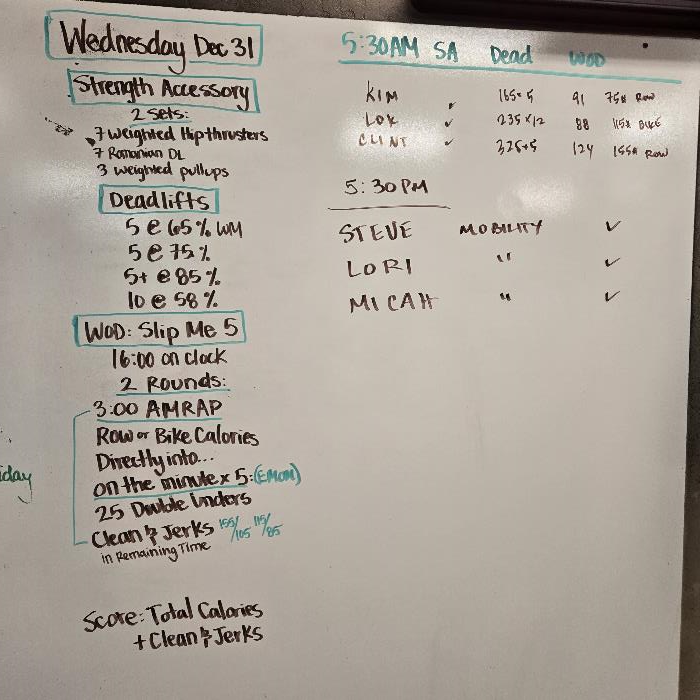 Wednesday Dec 31
Strength Accessory
2 Sets:
7 Weighted Hipthrusters
7 Romanian DL
3 weighted pullups
Deadlifts
5 @ 65% WM
5 @ 75%
5+ @ 85%
10 @ 58%
WOD: Slip Me 5
16:00 on clock
2 Rounds:
3:00 AMRAP
Row or Bike Calories
Directly into...
on the minute x 5: (EMOM)
25 Double Unders
Clean & Jerks 155/105 115/85
in Remaining Time
Score: Total Calories
+ Clean & Jerks
5:30AM SA Dead WOD
KIM ✓ 165 5 91 75# Row
✓ 235x12 88 115# BIKE
CLINT ✓ 325x5 124 155# ROW
5:30PM
STEVE MOBILITY ✓
LORI " ✓
MICAH " ✓
iday